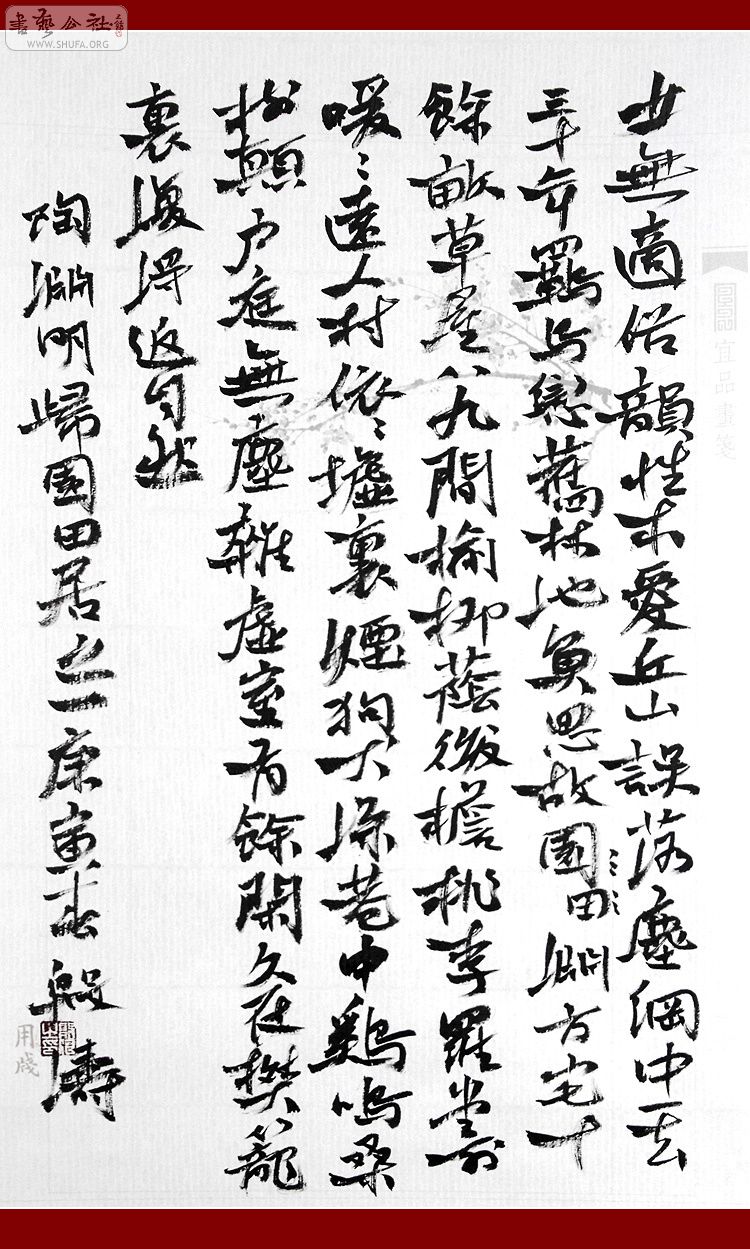 書藝公社
WWW.SHUFA.ORG
少無適俗韻性本愛丘山誤落塵網中一去
三十年羈鳥戀舊林池魚思故園田淵方宅十
餘畝草屋八九間榆柳蔭後檐桃李羅堂前
暖々遠人村依々墟裏煙狗犬深巷中鷄鳴桑
樹顛户庭無塵雜虛室有餘閑久在樊籠
裏復得返自然
陶淵明歸園田居之一庚寅春殷濤
宜品畫箋
用箋